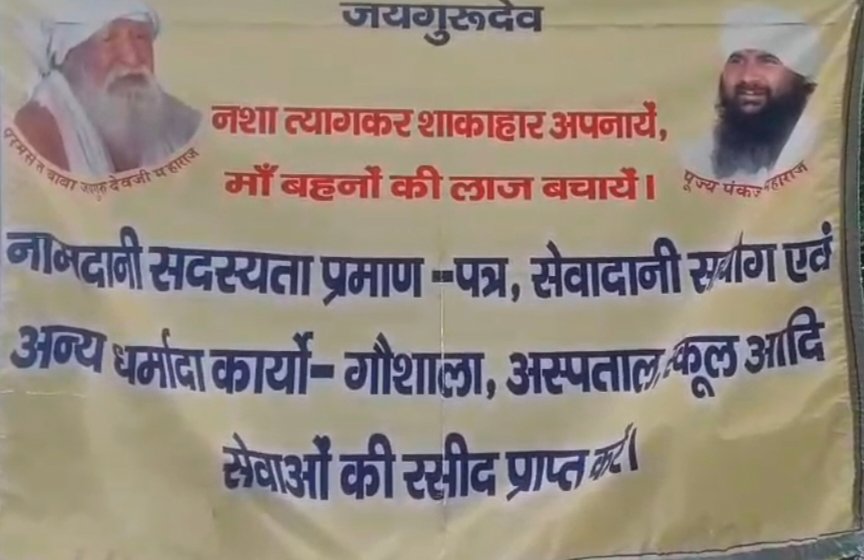 जयगुरूदेव
नशा त्यागकर शाकाहार अपनायें,
माँ बहनों की लाज बचायें।
परमसंत बाबा जयगुरुदेवजी महाराज
पूज्य पंकज महाराज
नामदानी सदस्यता प्रमाण-पत्र, सेवादानी सहयोग एवं
अन्य धर्मादा कार्यो- गौशाला, अस्पताल, स्कूल आदि
सेवाओं की रसीद प्राप्त करें।